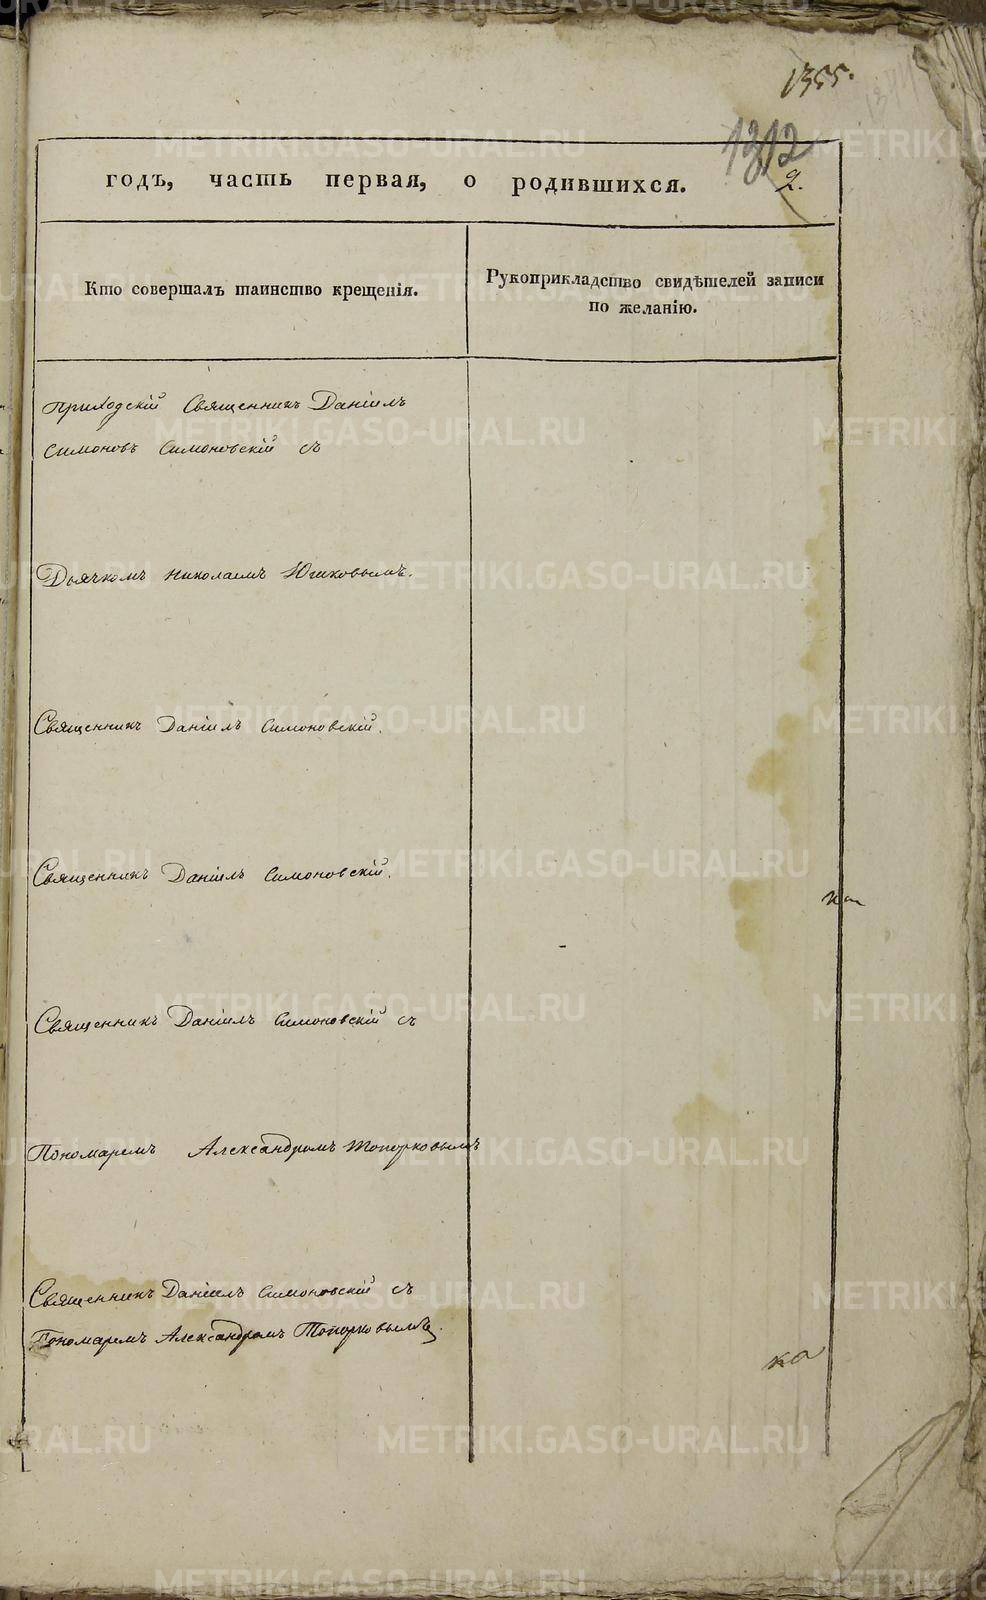 1355.
1312
2.
годъ, часть первая, о родившихся.
Кто совершалъ таинство крещенія.
Рукоприкладство свидѣтелей записи
по желанію.
приходскій Священникъ Даніилъ
Симоновъ Симоновскій съ
Дьячкомъ Николаемъ Юшковымъ.
Священникъ Даніилъ Симоновскій.
Священникъ Даніилъ Симоновскій.
Священникъ Даніилъ Симоновскій съ
Пономаремъ Александромъ Топорковымъ
Священникъ Даніилъ Симоновскій съ
Пономаремъ Александромъ Топорковымъ.
ка
METRIKI.GASO-URAL.RU